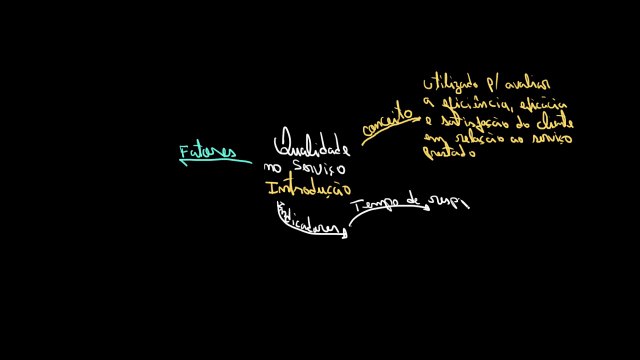 Fatores
Qualidade
no Serviço
Introdução
conceito
utilizado p/ avaliar
a eficiência, eficácia
e satisfação do cliente
em relação ao serviço
prestado
Indicadores
Tempo de resp